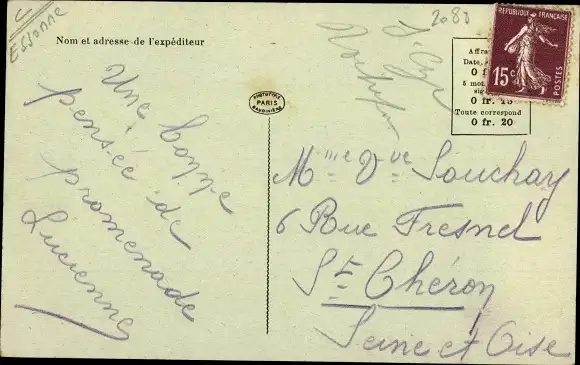 C
Essonne
2080
Nom et adresse de l'expéditeur
St Cyr
Une bonne
pensée de
promenade
Lucienne
PARIS
RÉPUBLIQUE FRANÇAISE
15c
POSTES
Affra
Date,
0 f
5 mot
sig
0 fr. 15
Toute correspond
0 fr. 20
Mme Vve Souchay
6 Rue Fresnel
St Chéron
Seine et Oise